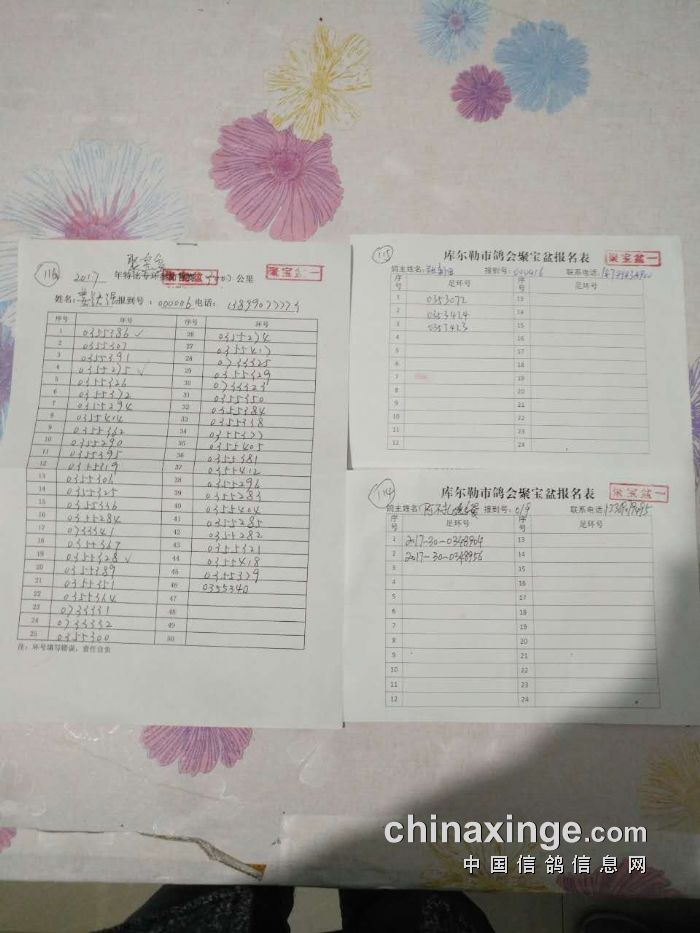 116
聚宝盆
2017 年 公里
聚宝盆一
聚宝盆一
姓名: 报到号: 000006 电话:
序号 环号 序号 环号
1 0355386 ✓ 26 0355274
2 0355307 27 0355417
3 0355391 28 0733325
4 0355275 ✓ 29 0355329
5 0355326 30 0733323
6 0355372 31 0355350
7 0355294 32 0355384
8 0355414 33 0355338
9 0355362 34 0355377
10 0355290 35 0355405
11 0355395 36 0355381
12 0355319 37 0355412
13 0355306 38 0355296
14 0355325 39 0355283
15 0355336 40 0355404
16 0355284 41 0355285
17 0733341 42 0355282
18 0355367 43 0355321
19 0355328 ✓ 44 0355418
20 0355389 45 0355379
21 0355351 46 0355340
22 0355364 47
23 0733331 48
24 0733332 49
25 0355300 50
注:环号填写错误,责任自负
115
库尔勒市鸽会聚宝盆报名表
聚宝盆一
鸽主姓名: 报到号: 000416 联系电话:
序号 足环号 序号 足环号
1 0353072 13
2 0353424 14
3 0353423 15
4 16
5 17
6 18
7 19
8 20
9 21
10 22
11 23
12 24
114
库尔勒市鸽会聚宝盆报名表
聚宝盆一
鸽主姓名: 报到号: 019 联系电话:
序号 足环号 序号 足环号
1 2017-30-0348904 13
2 2017-30-0348956 14
3 15
4 16
5 17
6 18
7 19
8 20
9 21
10 22
11 23
12 24
chinaxinge.com
中国信鸽信息网